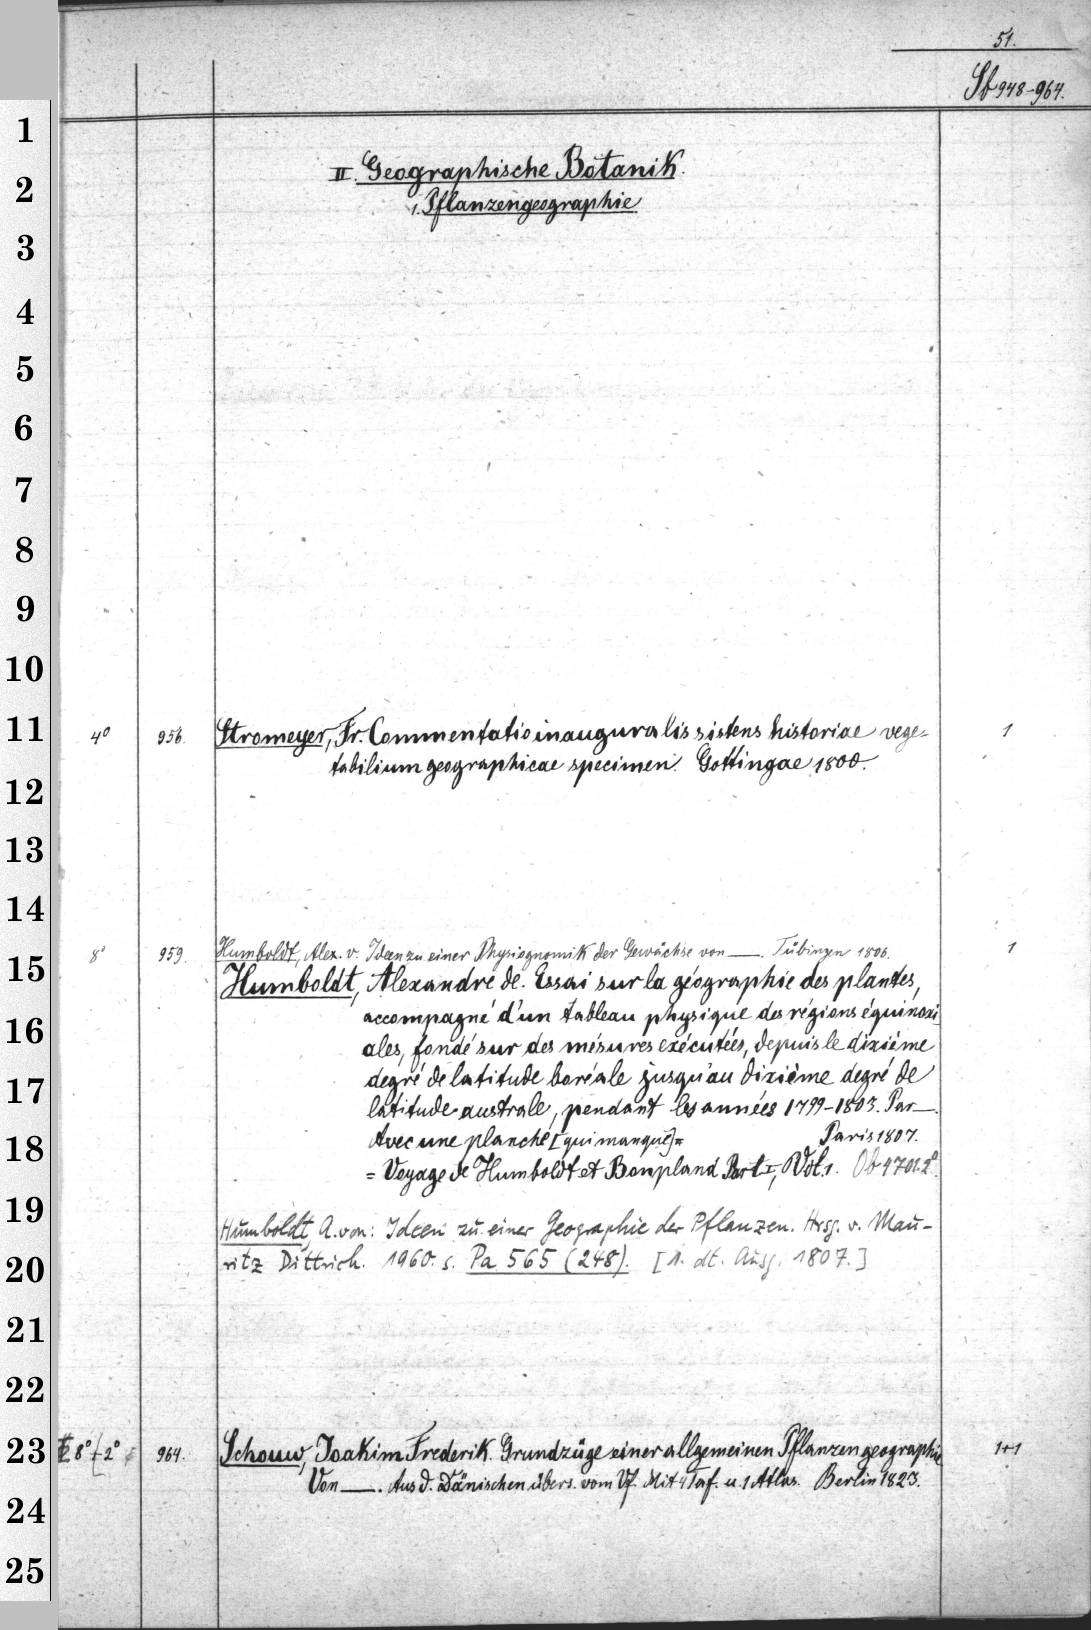 51.
Sb 948-964.
1
II. Geographische Botanik.
2
1. Pflanzengeographie
3
4
5
6
7
8
9
10
11
4° 956. Stromeyer, Fr. Commentatio inauguralis sistens historiae vege= 1
tabilium geographicae specimen. Gottingae 1800.
12
13
14
8° 959. Humboldt, Alex. v. Ideen zu einer Physiognomik der Gewächse von —. Tübingen 1806. 1
15
Humboldt, Alexandre de. Essai sur la géographie des plantes,
accompagné d'un tableau physique des régions équinoxi
16
ales, fondé sur des mésures exécutées, depuis le dixième
17
degré de latitude boréale jusqu'au dixième degré de
latitude australe, pendant les années 1799-1803. Par —.
18
Avec une planche [qui manque] = Paris 1807.
= Voyage de Humboldt et Bonpland Part I, Vol. 1. Ob 4701.2°
19
Humboldt, A. von: Ideen zu einer Geographie der Pflanzen. Hrsg. v. Mau-
20
ritz Dittrich. 1960. s. Pa 565 (248). [1. dt. Ausg. 1807.]
21
22
23
8° + 2° 964. Schouw, Joakim Frederik. Grundzüge einer allgemeinen Pflanzengeographie 1+1
Von —. Aus d. Dänischen übers. vom Vf. Mit 4 Taf. u. 1 Atlas. Berlin 1823.
24
25